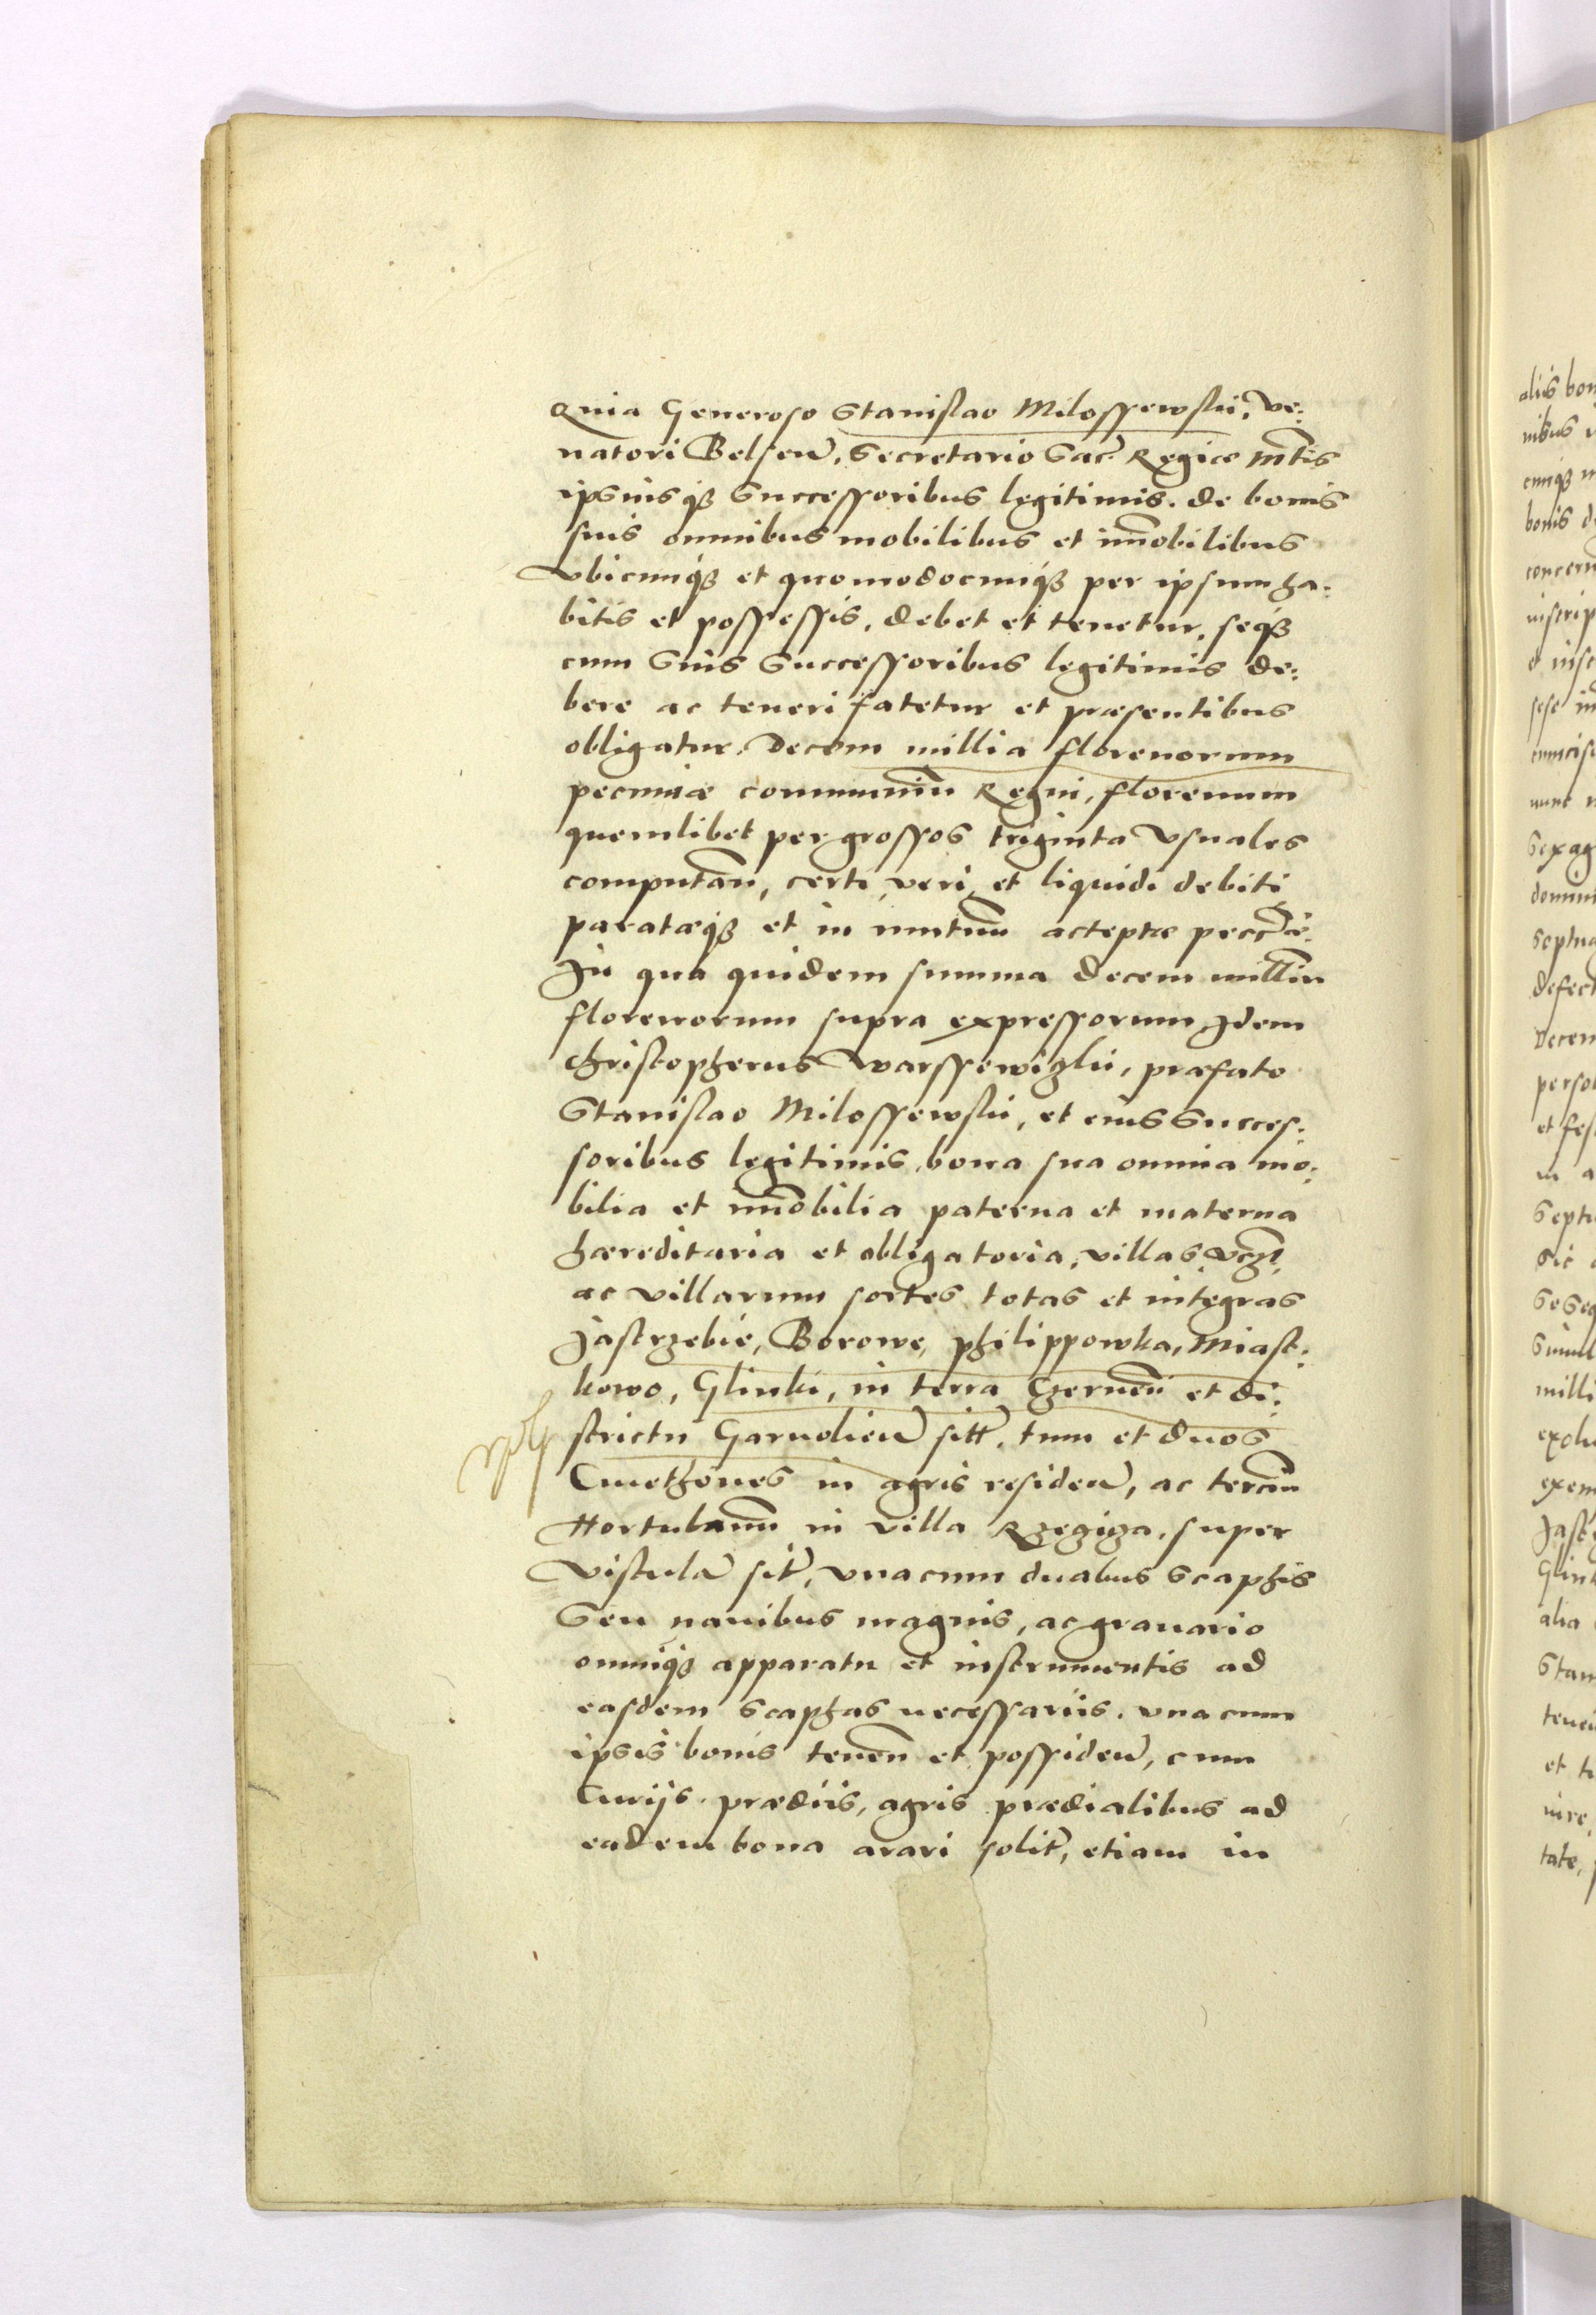 Quia Generoso Stanislao Milossewskii, Ve:
natori Belsen̄, Secretario Sacr̄ Regiae Mt̄is
ipsiusqȝ Successoribus legitimis. de bonis
suis omnibus mobilibus et im̄obilibus
vbicunqȝ et quomodocunqȝ per ipsum ha:
bitis et possessis, debet et tenetur, seqȝ
cum Suis Successoribus legitimis de:
bere ac teneri fatetur et praesentibus
obligatur. Decem millia florenorum
pecuniae com̄munis Regni, florenum
quemlibet per grossos triginta vsuales
computan̄, certi veri, et liquidi debiti
parataeqȝ et in mutuū acceptae pecc̄ae.
In qua quidem summa decem milliū
florenorum supra expressorum Idem
Christopherus Warssewizkii, praefato
Stanislao Milossewskii, et eius Succes:
soribus legitimis bona sua omnia mo:
bilia et im̄obilia paterna et materna
haereditaria et obligatoria, villas vczl̄t,
ac villarum sortes totas et integras
Jastrzebie, Borowe, Philippowka, Miast:
kowo, Glinki, in terra Czernen̄ et di:
strictu Garuolien̄ sitt̄. tum et duos
Cmethones in agris residen̄, ac terciū
Hortulanū in villa Rzegiza, super
Vistulā sit̄, vna cum duabus scaphis
Seu nauibus magnis, ac granario
omniqȝ apparatu et instrumentis ad
easdem scaphas necessariis. vna cum
ipsis bonis tenen̄ et possiden̄, cum
Curijs. praediis, agris praedialibus ad
eadem bona arari solit̄, etiam in